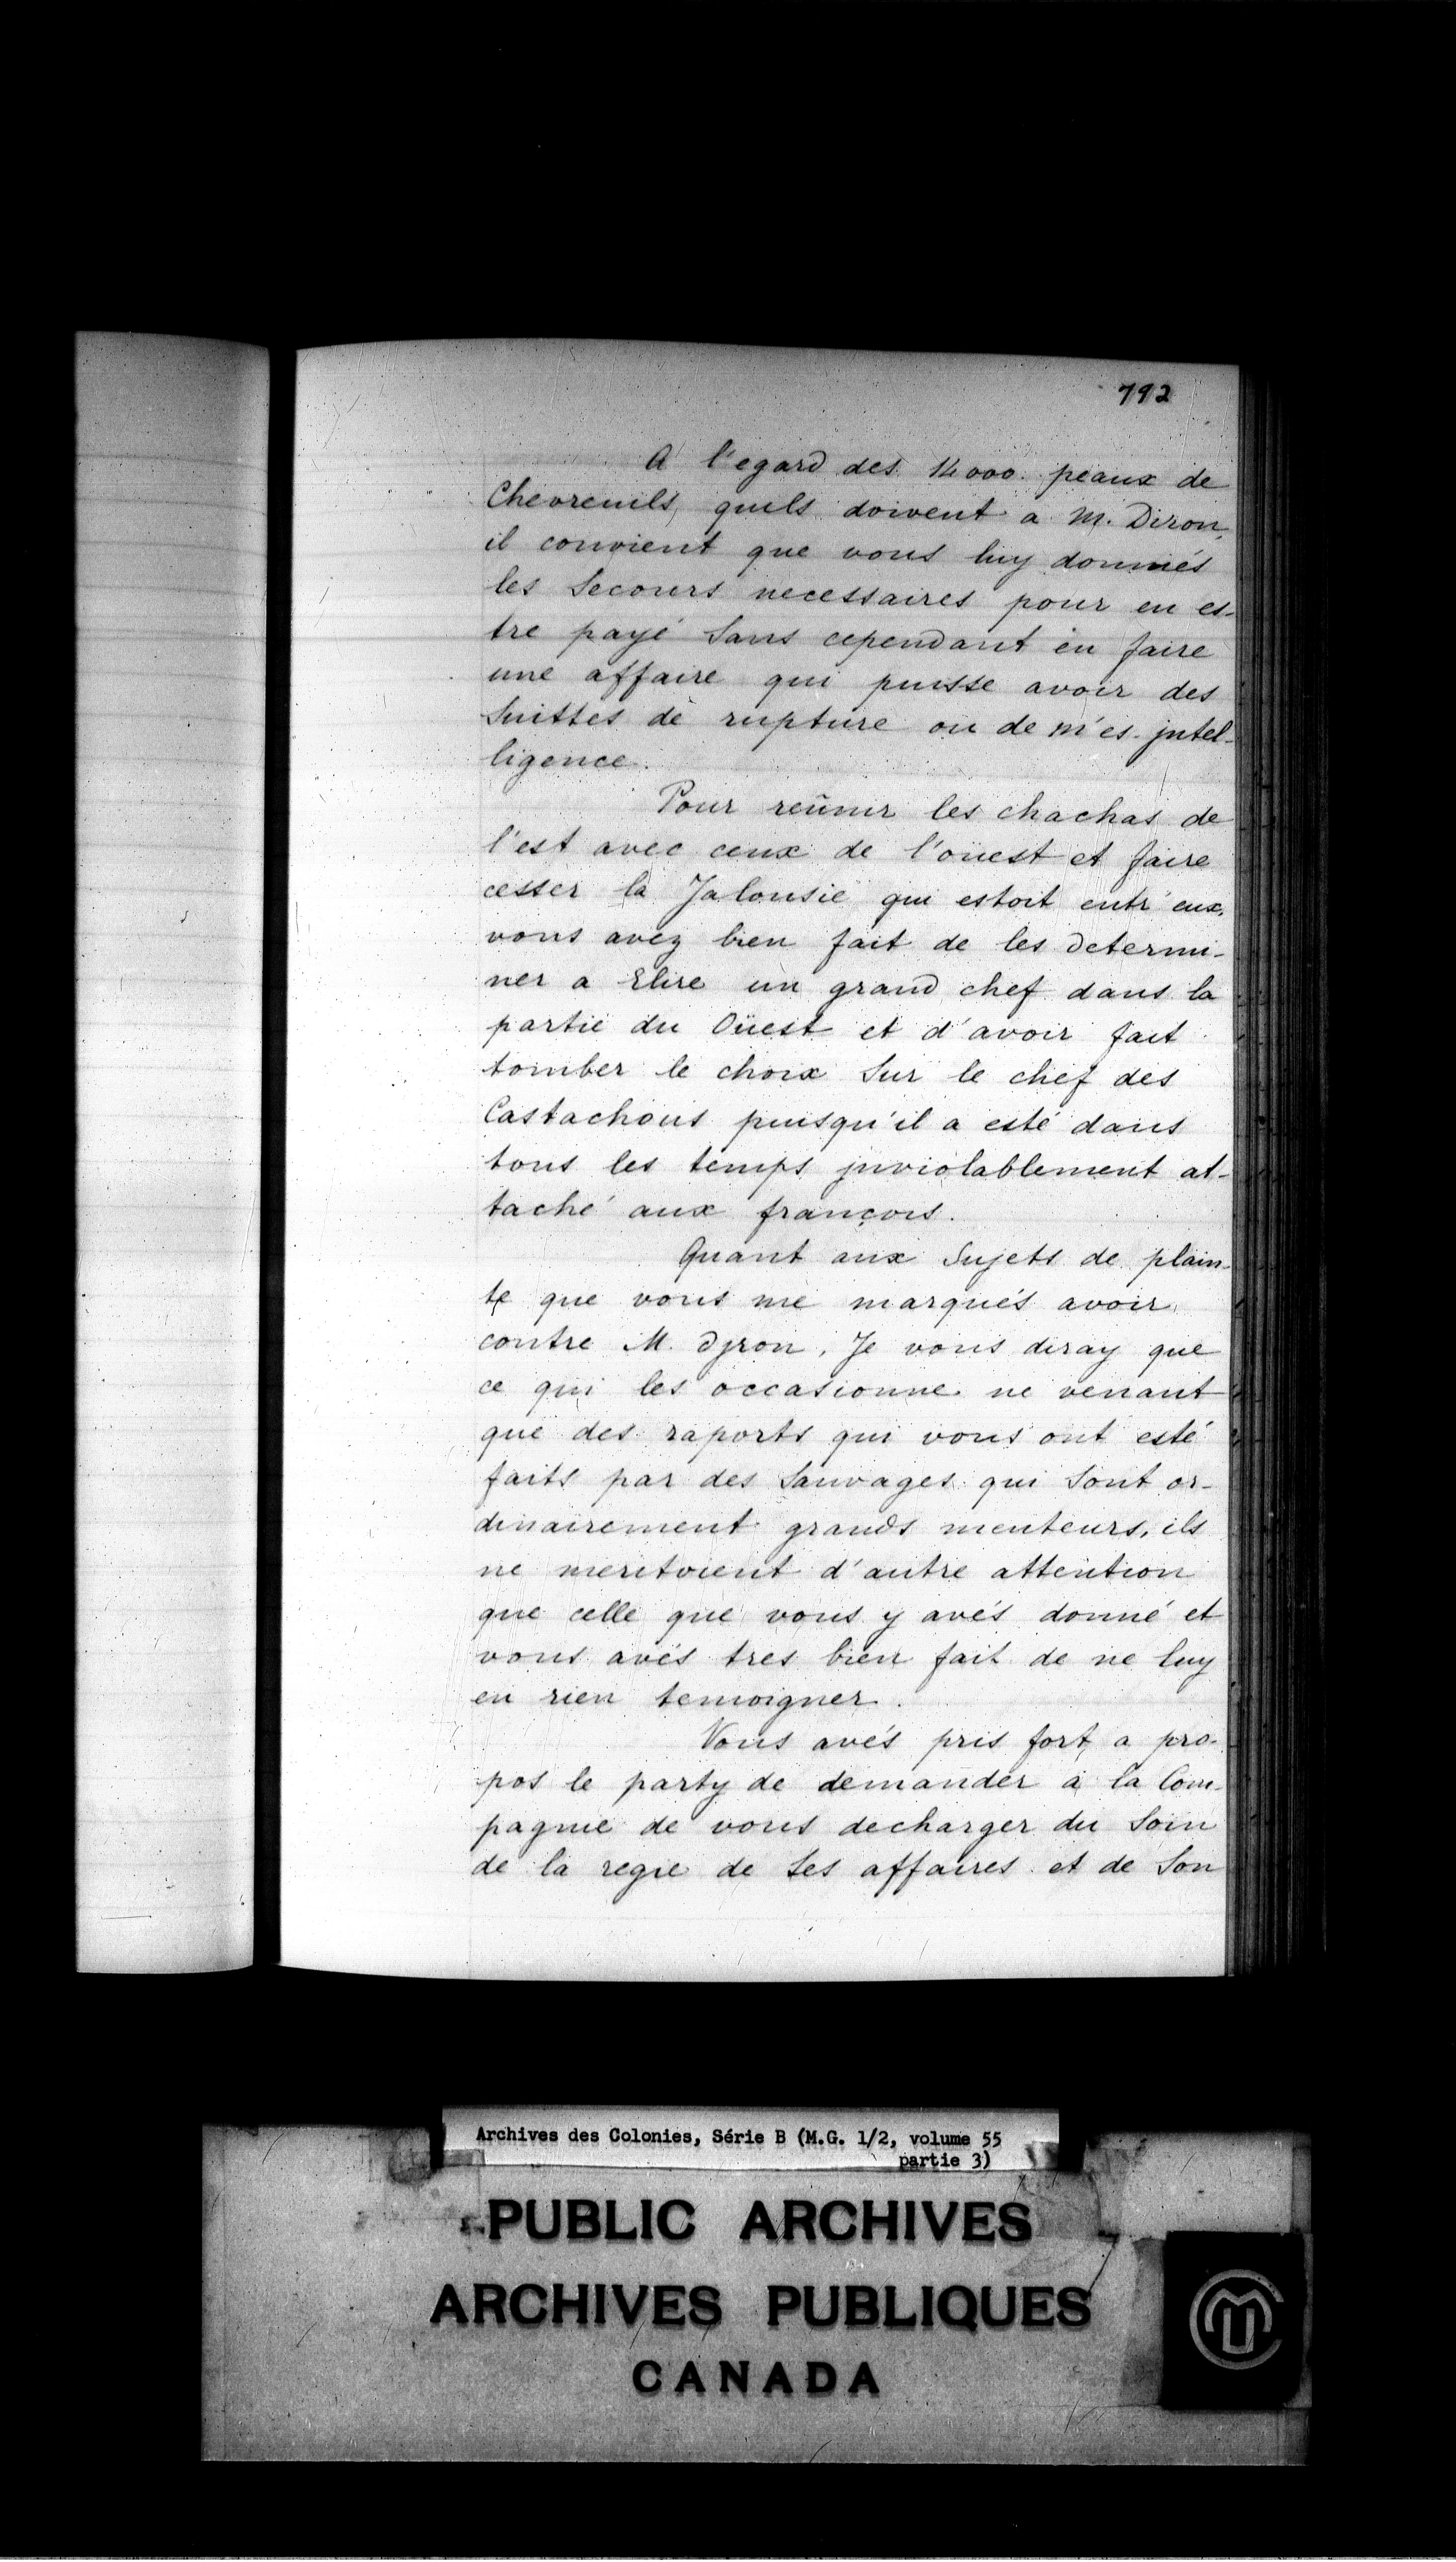 792
A l'egard des 14000 peaux de
Chevreuils, quils doivent a M. Diron,
il convient que vous luy donniés
les Secours necessaires pour en es-
tre payé Sans cependant en faire
une affaire qui puisse avoir des
Suittes de rupture ou de més-jntel-
ligence.
Pour reünir les chachas de
l'est avec ceux de l'oüest et faire
cesser la Jalousie qui estoit entr'eux,
vous avez bien fait de les determi-
ner a Elire un grand chef dans la
partie du Oüest et d'avoir fait
tomber le choix Sur le chef des
Castachous puisqu'il a esté dans
tous les temps jnviolablement at-
taché aux françois.
Quant aux Sujets de plain-
te que vous me marqués avoir
contre M. Djron, Je vous diray que
ce qui les occasionne ne venant
que des raports qui vous ont esté
faits par des Sauvages qui Sont or-
dinairement grands menteurs, ils
ne meritoient d'autre attention
que celle que vous y avés donné et
vous avés tres bien fait de ne luy
en rien temoigner.
Vous avés pris fort a pro-
pos le party de demander a la Com-
pagnie de vous decharger du Soin
de la regie de Ses affaires et de Son
Archives des Colonies, Série B (M.G. 1/2, volume 55
partie 3)
PUBLIC ARCHIVES
ARCHIVES PUBLIQUES
CANADA